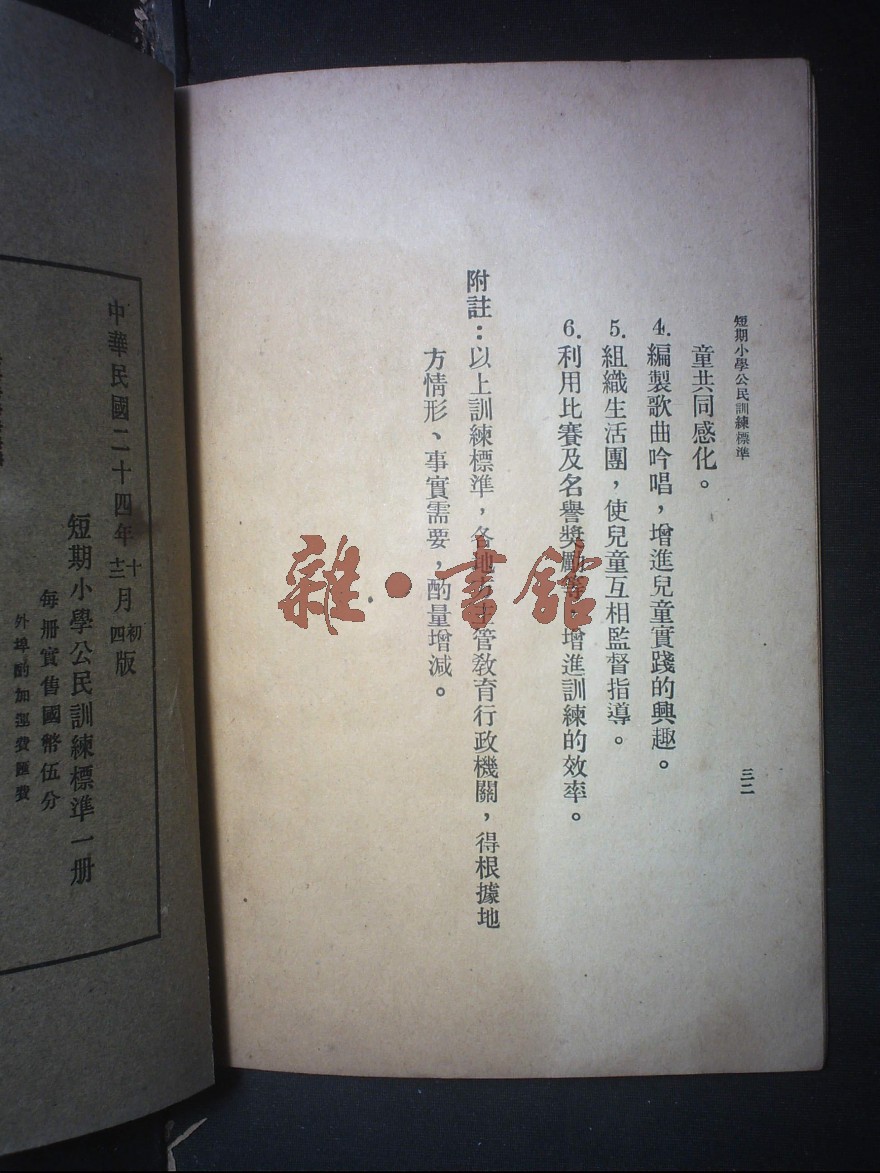 短期小學公民訓練標準
三二
童共同感化。
4. 編製歌曲吟唱，增進兒童實踐的興趣。
5. 組織生活團，使兒童互相監督指導。
6. 利用比賽及名譽獎勵等，增進訓練的效率。
附註：以上訓練標準，各地方主管教育行政機關，得根據地
方情形、事實需要，酌量增減。
雜·書館
中華民國二十四年十月初版
十二月四版
短期小學公民訓練標準一册
每册實售國幣伍分
外埠酌加運費匯費